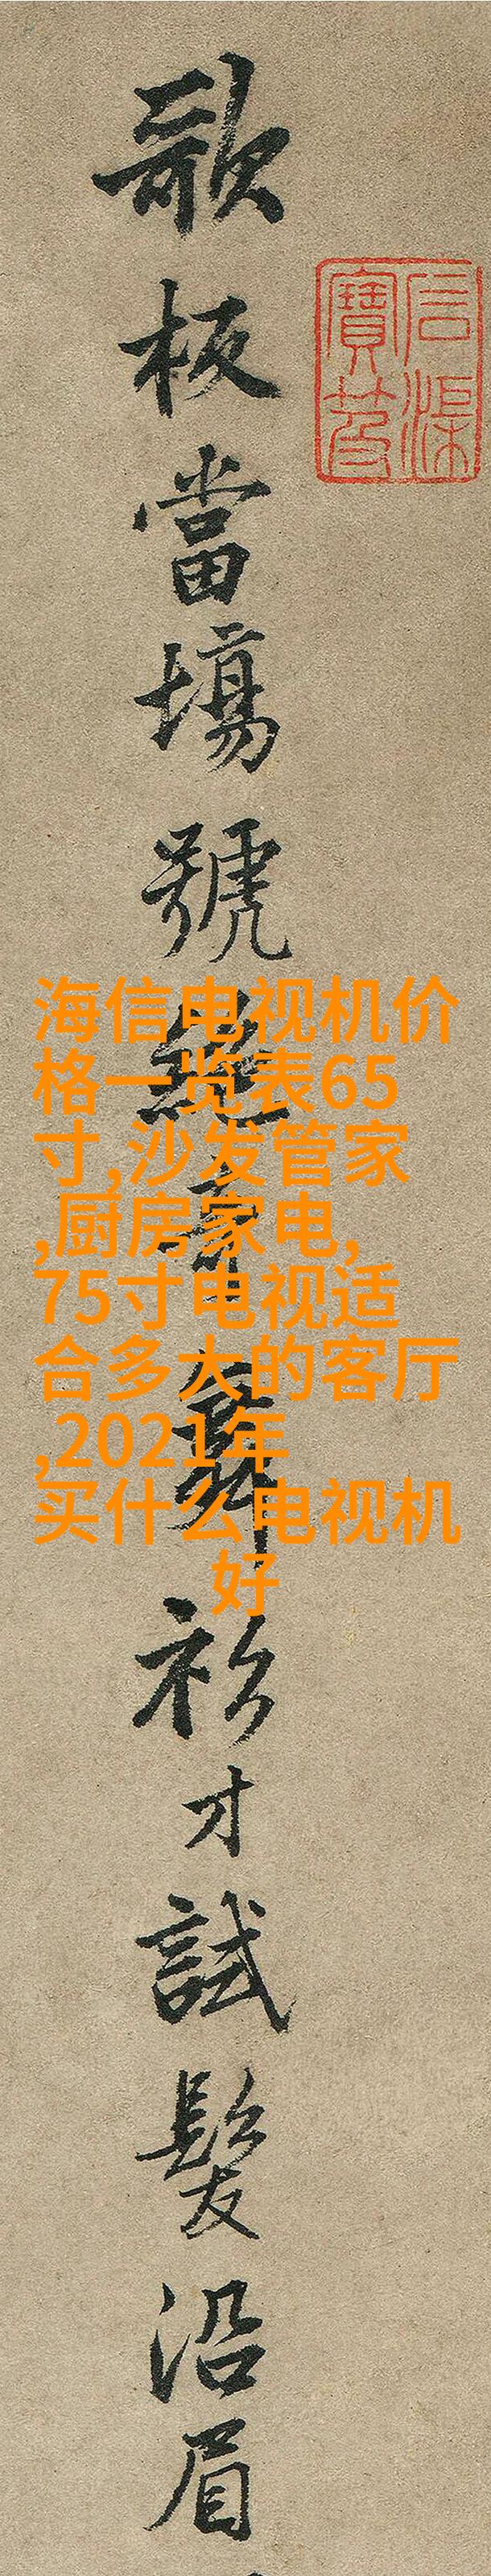 石渠
寶笈
歌板當塲號絶奇舞衫才試髮沿眉
海信电视机价
格一览表65
寸,沙发管家
,厨房家电,
75寸电视适
合多大的客厅
,2021年
买什么电视机
好